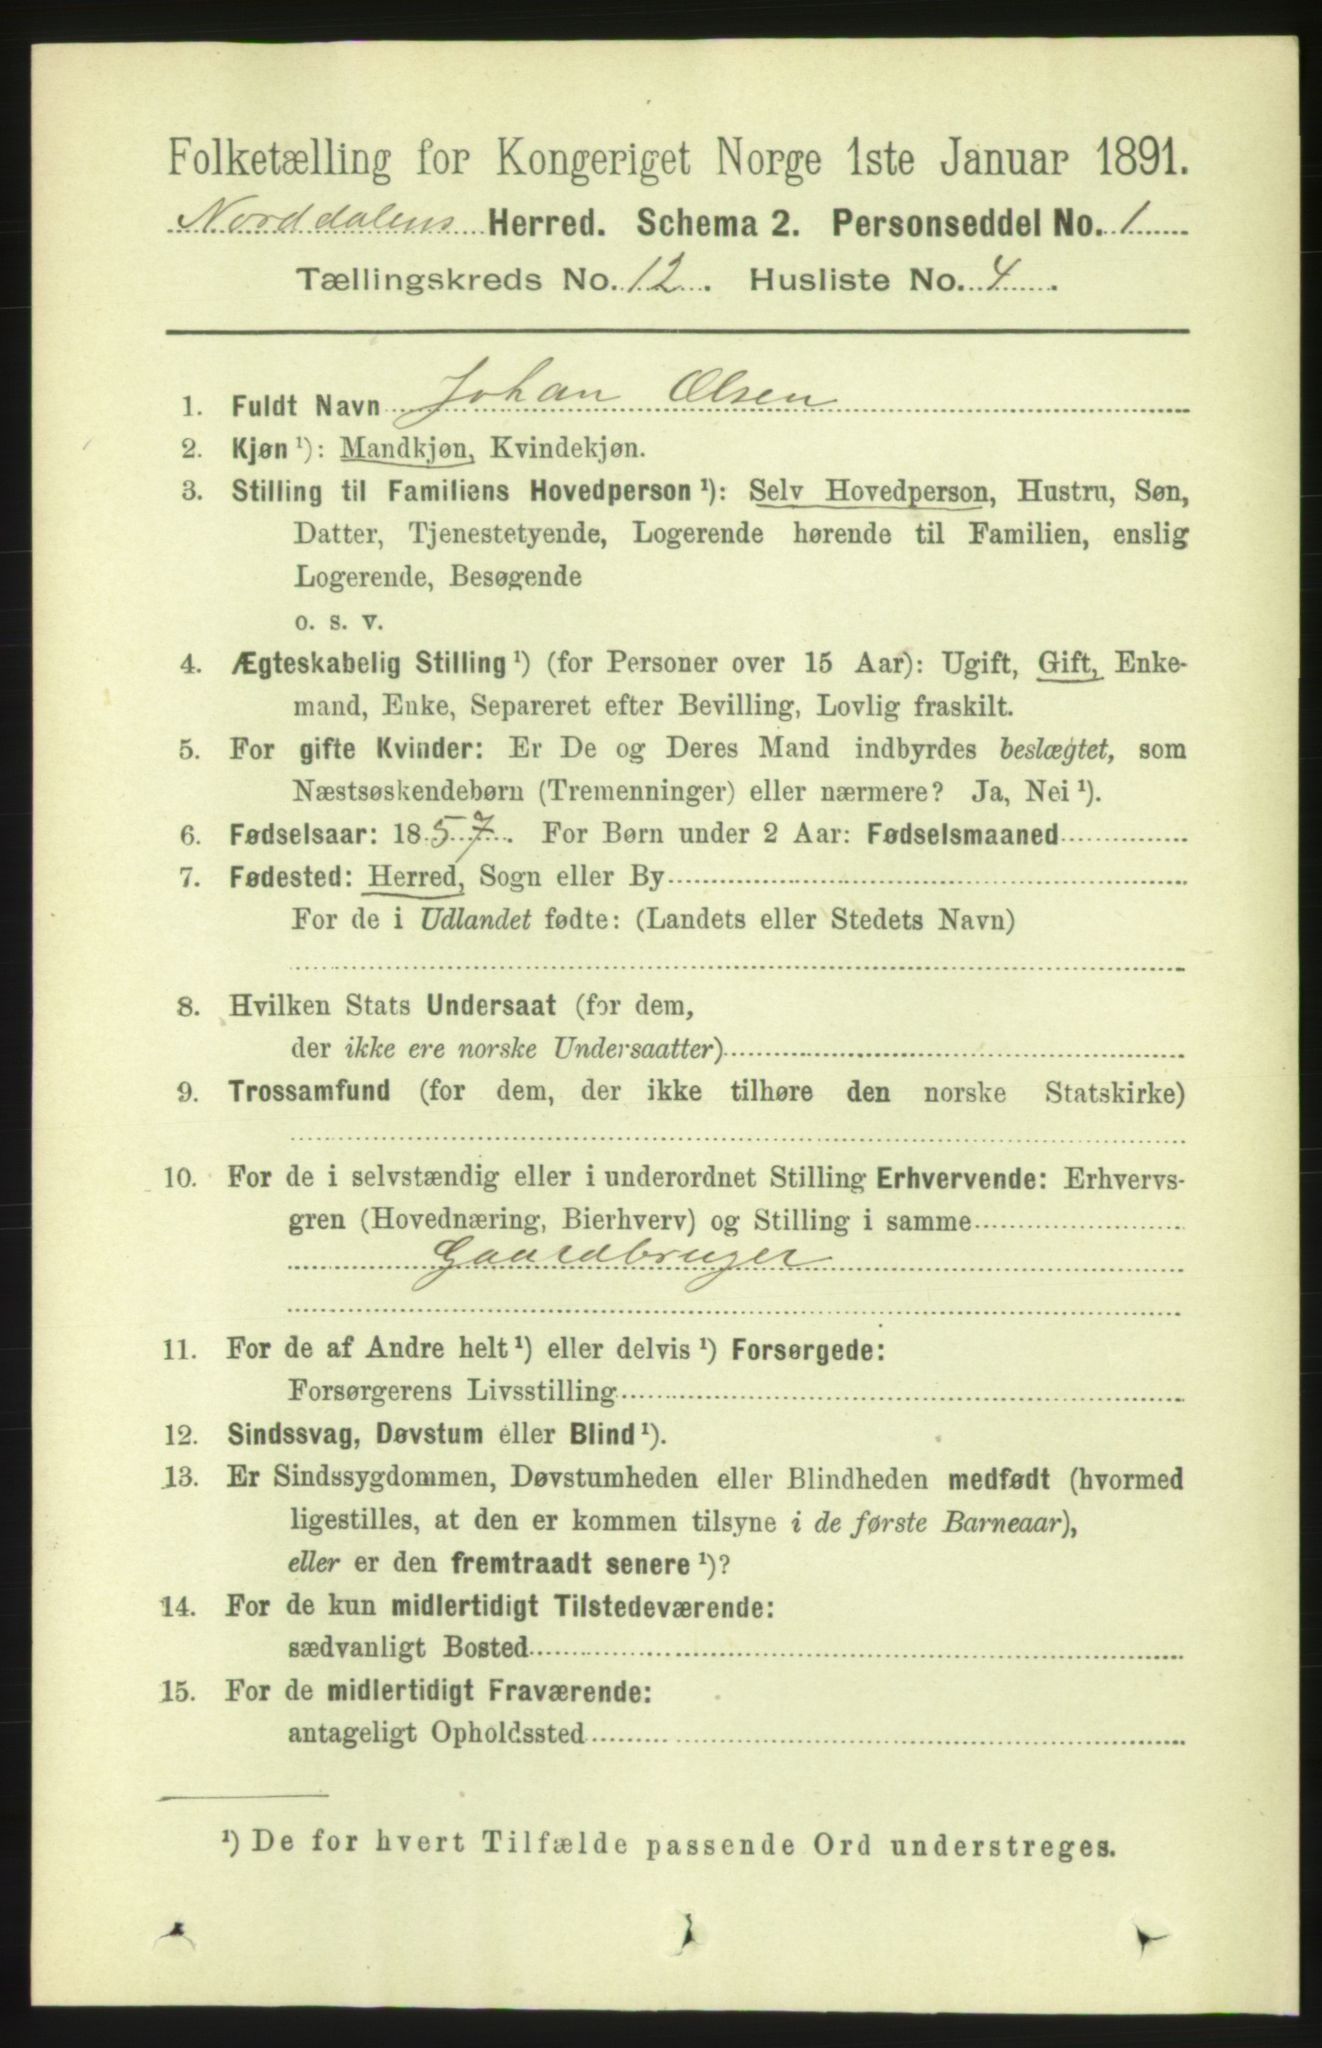 Folketælling for Kongeriget Norge 1ste Januar 1891.
Norddalens Herred. Schema 2. Personseddel No. 1
Tællingskreds No. 12. Husliste No. 4.
1. Fuldt Navn Johan Olsen
2. Kjøn ¹): Mandkjøn, Kvindekjøn.
3. Stilling til Familiens Hovedperson ¹): Selv Hovedperson, Hustru, Søn,
Datter, Tjenestetyende, Logerende hørende til Familien, enslig
Logerende, Besøgende
o. s. v.
4. Ægteskabelig Stilling ¹) (for Personer over 15 Aar): Ugift, Gift, Enke-
mand, Enke, Separeret efter Bevilling, Lovlig fraskilt.
5. For gifte Kvinder: Er De og Deres Mand indbyrdes beslægtet, som
Næstsøskendebørn (Tremenninger) eller nærmere? Ja, Nei ¹).
6. Fødselsaar: 1857. For Børn under 2 Aar: Fødselsmaaned
7. Fødested: Herred, Sogn eller By
For de i Udlandet fødte: (Landets eller Stedets Navn)
8. Hvilken Stats Undersaat (for dem,
der ikke ere norske Undersaatter)
9. Trossamfund (for dem, der ikke tilhøre den norske Statskirke)
10. For de i selvstændig eller i underordnet Stilling Erhvervende: Erhvervs-
gren (Hovednæring, Bierhverv) og Stilling i samme
Gaardbruger
11. For de af Andre helt ¹) eller delvis ¹) Forsørgede:
Forsørgerens Livsstilling
12. Sindssvag, Døvstum eller Blind ¹).
13. Er Sindssygdommen, Døvstumheden eller Blindheden medfødt (hvormed
ligestilles, at den er kommen tilsyne i de første Barneaar),
eller er den fremtraadt senere ¹)?
14. For de kun midlertidigt Tilstedeværende:
sædvanligt Bosted
15. For de midlertidigt Fraværende:
antageligt Opholdssted
¹) De for hvert Tilfælde passende Ord understreges.